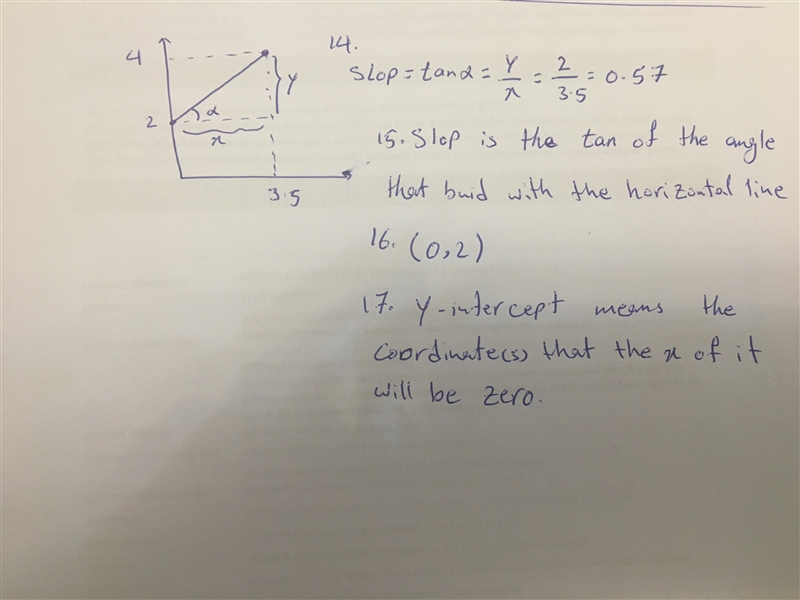 4
2
α
x
y
3.5
14.
Slop = tanα = y/x = 2/3.5 = 0.57
15. Slop is the tan of the angle
that buid with the horizontal line
16. (0,2)
17. Y-intercept means the
coordinate(s) that the x of it
will be zero.